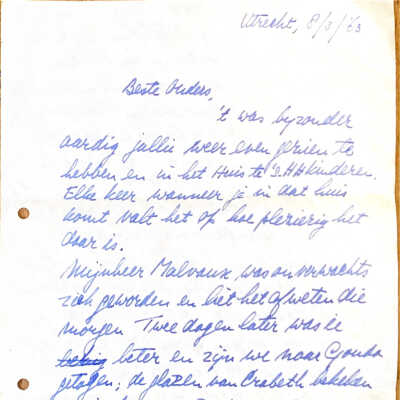 Utrecht, 8/3/63
Beste Ouders,
't was byzonder
aardig jullie weer even gezien te
hebben en in het Huis te 's H H kinderen.
Elke keer wanneer je in dat huis
komt valt het op hoe plezierig het
daar is.
Mijnheer Malvaux, was onverwachts
ziek geworden en liet het afweten die
morgen Twee dagen later was ie
beter en zijn we naar Gouda
getogen; de glazen van Crabeth bekeken